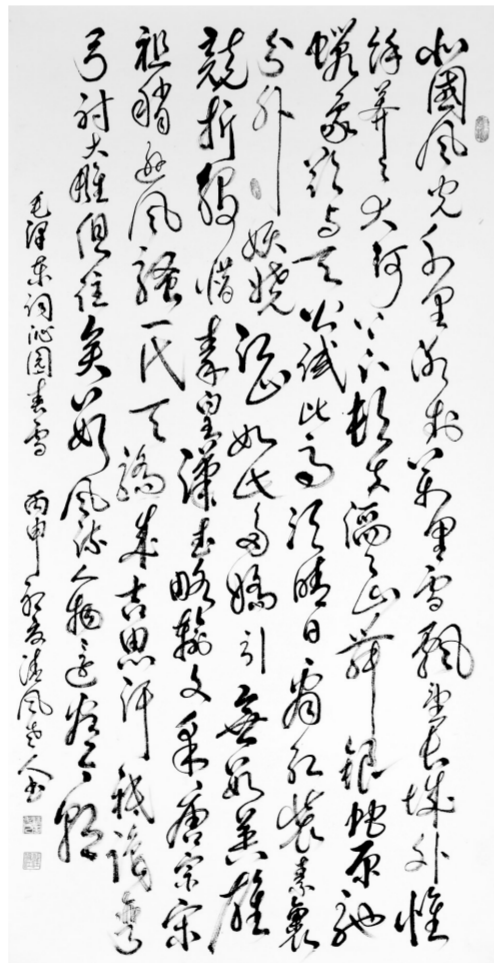 北國風光千里冰封萬里雪飄望長城外惟
餘莽莽大河上下頓失滔滔山舞銀蛇原馳
蠟象欲與天公試比高須晴日看紅裝素裹
分外妖嬈江山如此多嬌引無數英雄
競折腰惜秦皇漢武略輸文采唐宗宋
祖稍遜風騷一代天驕成吉思汗祇識彎
弓射大雕俱往矣數風流人物還看今朝
毛澤東詞沁園春雪 丙申清風老人書